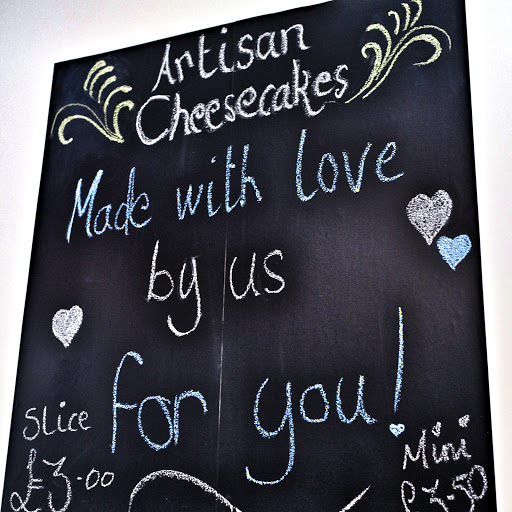 Artisan
Cheesecakes
Made with love
by us
for you!
Slice
£3.00
Mini
£3.50